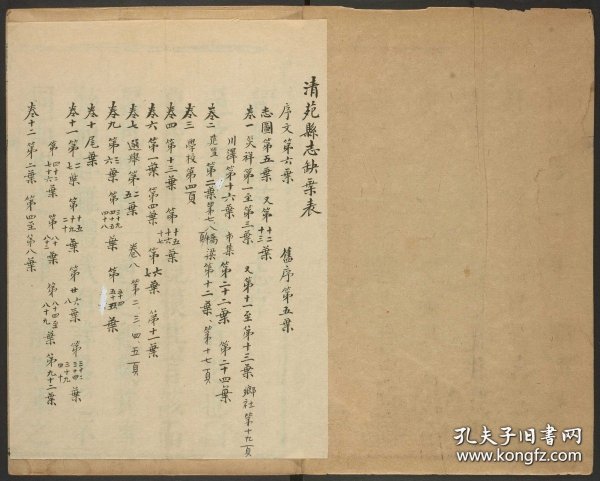 清苑縣志缺葉表
序文第六葉 舊序第五葉
志圖第五葉 又第十二十三葉
卷一 災祥第一至第三葉 又第十一至第十三葉 鄉社第十九頁
川澤第十六葉 市集第二十二葉 第二十四葉
卷二 第二葉第七八葉 橋梁第十二葉 第十七頁
卷三 學校第四頁
卷四 第十三葉 第十五十六十七葉
卷六 第一葉 第四葉 第六七葉 第十一葉
卷七 選舉第五葉 卷八 第二三四五頁
卷九 第六葉 第葉 第葉
卷十 尾葉
卷十一 第葉 第葉 第廿六八葉 第葉
第葉 第葉 第八十四至八十九葉 第九十二葉
卷十二 第二葉 第四至第八葉
孔夫子旧书网
www.kongfz.com